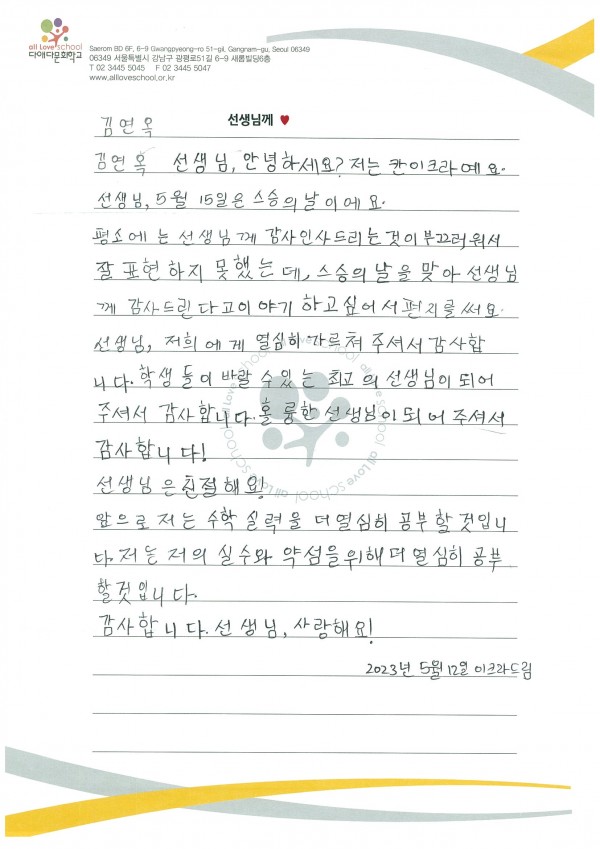 all Love school
다애다문화학교
Saerom BD 6F, 6-9 Gwangpyeong-ro 51-gil, Gangnam-gu, Seoul 06349
06349 서울특별시 강남구 광평로51길 6-9 새롬빌딩6층
T 02 3445 5045 F 02 3445 5047
www.allloveschool.or.kr
김연옥 선생님께
김연옥 선생님, 안녕하세요? 저는 칸이크라예요.
선생님, 5월 15일은 스승의 날이에요.
평소에는 선생님께 감사인사드리는 것이 부끄러워서
잘 표현하지 못했는데, 스승의 날을 맞아 선생님
께 감사드린다고 이야기 하고 싶어서 편지를 써요.
선생님, 저희에게 열심히 가르쳐 주셔서 감사합
니다. 학생들이 바랄 수 있는 최고의 선생님이 되어
주셔서 감사합니다. 훌륭한 선생님이 되어 주셔서
감사합니다!
선생님은 친절해요!
앞으로 저는 수학 실력을 더 열심히 공부할 것입니
다. 저는 저의 실수와 약점을 위해 더 열심히 공부
할 것입니다.
감사합니다. 선생님, 사랑해요!
2023년 5월 12일 이크라드림
all Love school all Love school all Love school all Love school